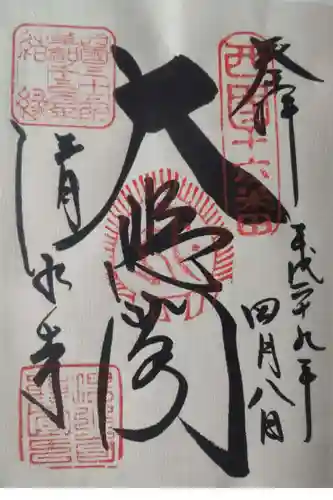 奉拝
西国十六番
平成二十九年
四月八日
大悲閣
結縁
清水寺